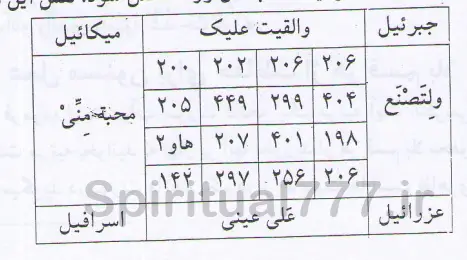 جبرئیل والقیت علیک میکائیل
۲۰۶ ۲۰۶ ۲۰۲ ۲۰۰
ولِتَصْنَع ۴۰۴ ۲۹۹ ۴۴۹ ۲۰۵ محبة مِنِّیْ
۱۹۸ ۴۰۱ ۲۰۷ هاو۲
۲۰۶ ۲۵۶ ۲۹۷ ۱۴۲
عزرائیل عَلی عینی اسرافیل
Spiritual777.ir